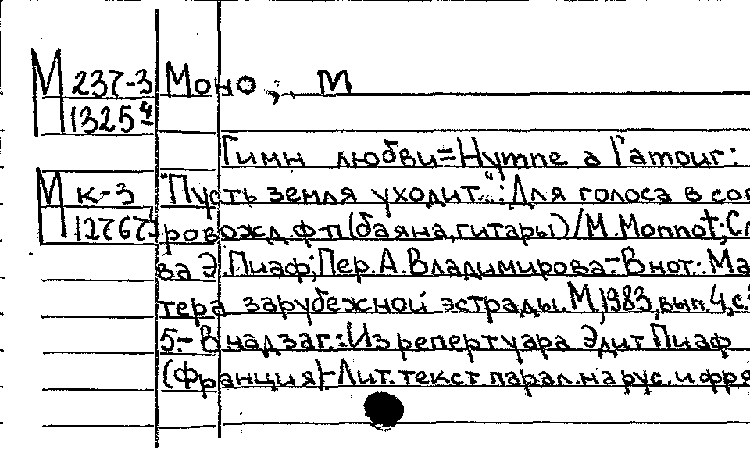 М 237-3 Моно, М
13254
Гимн любви=Hymne a l'amour:
М к-3 "Пусть земля уходит...": Для голоса в соп
12767 ровожд. ф-п (баяна, гитары)/M. Monnot; Сл
ва Э. Пиаф; Пер. А. Владимирова.-В нот.: Ма
тера зарубежной эстрады. М., 1983, вып. 4, с.
5.- В надзаг.: Из репертуара Эдит Пиаф
(Франция)-Лит. текст парал. на рус. и фра